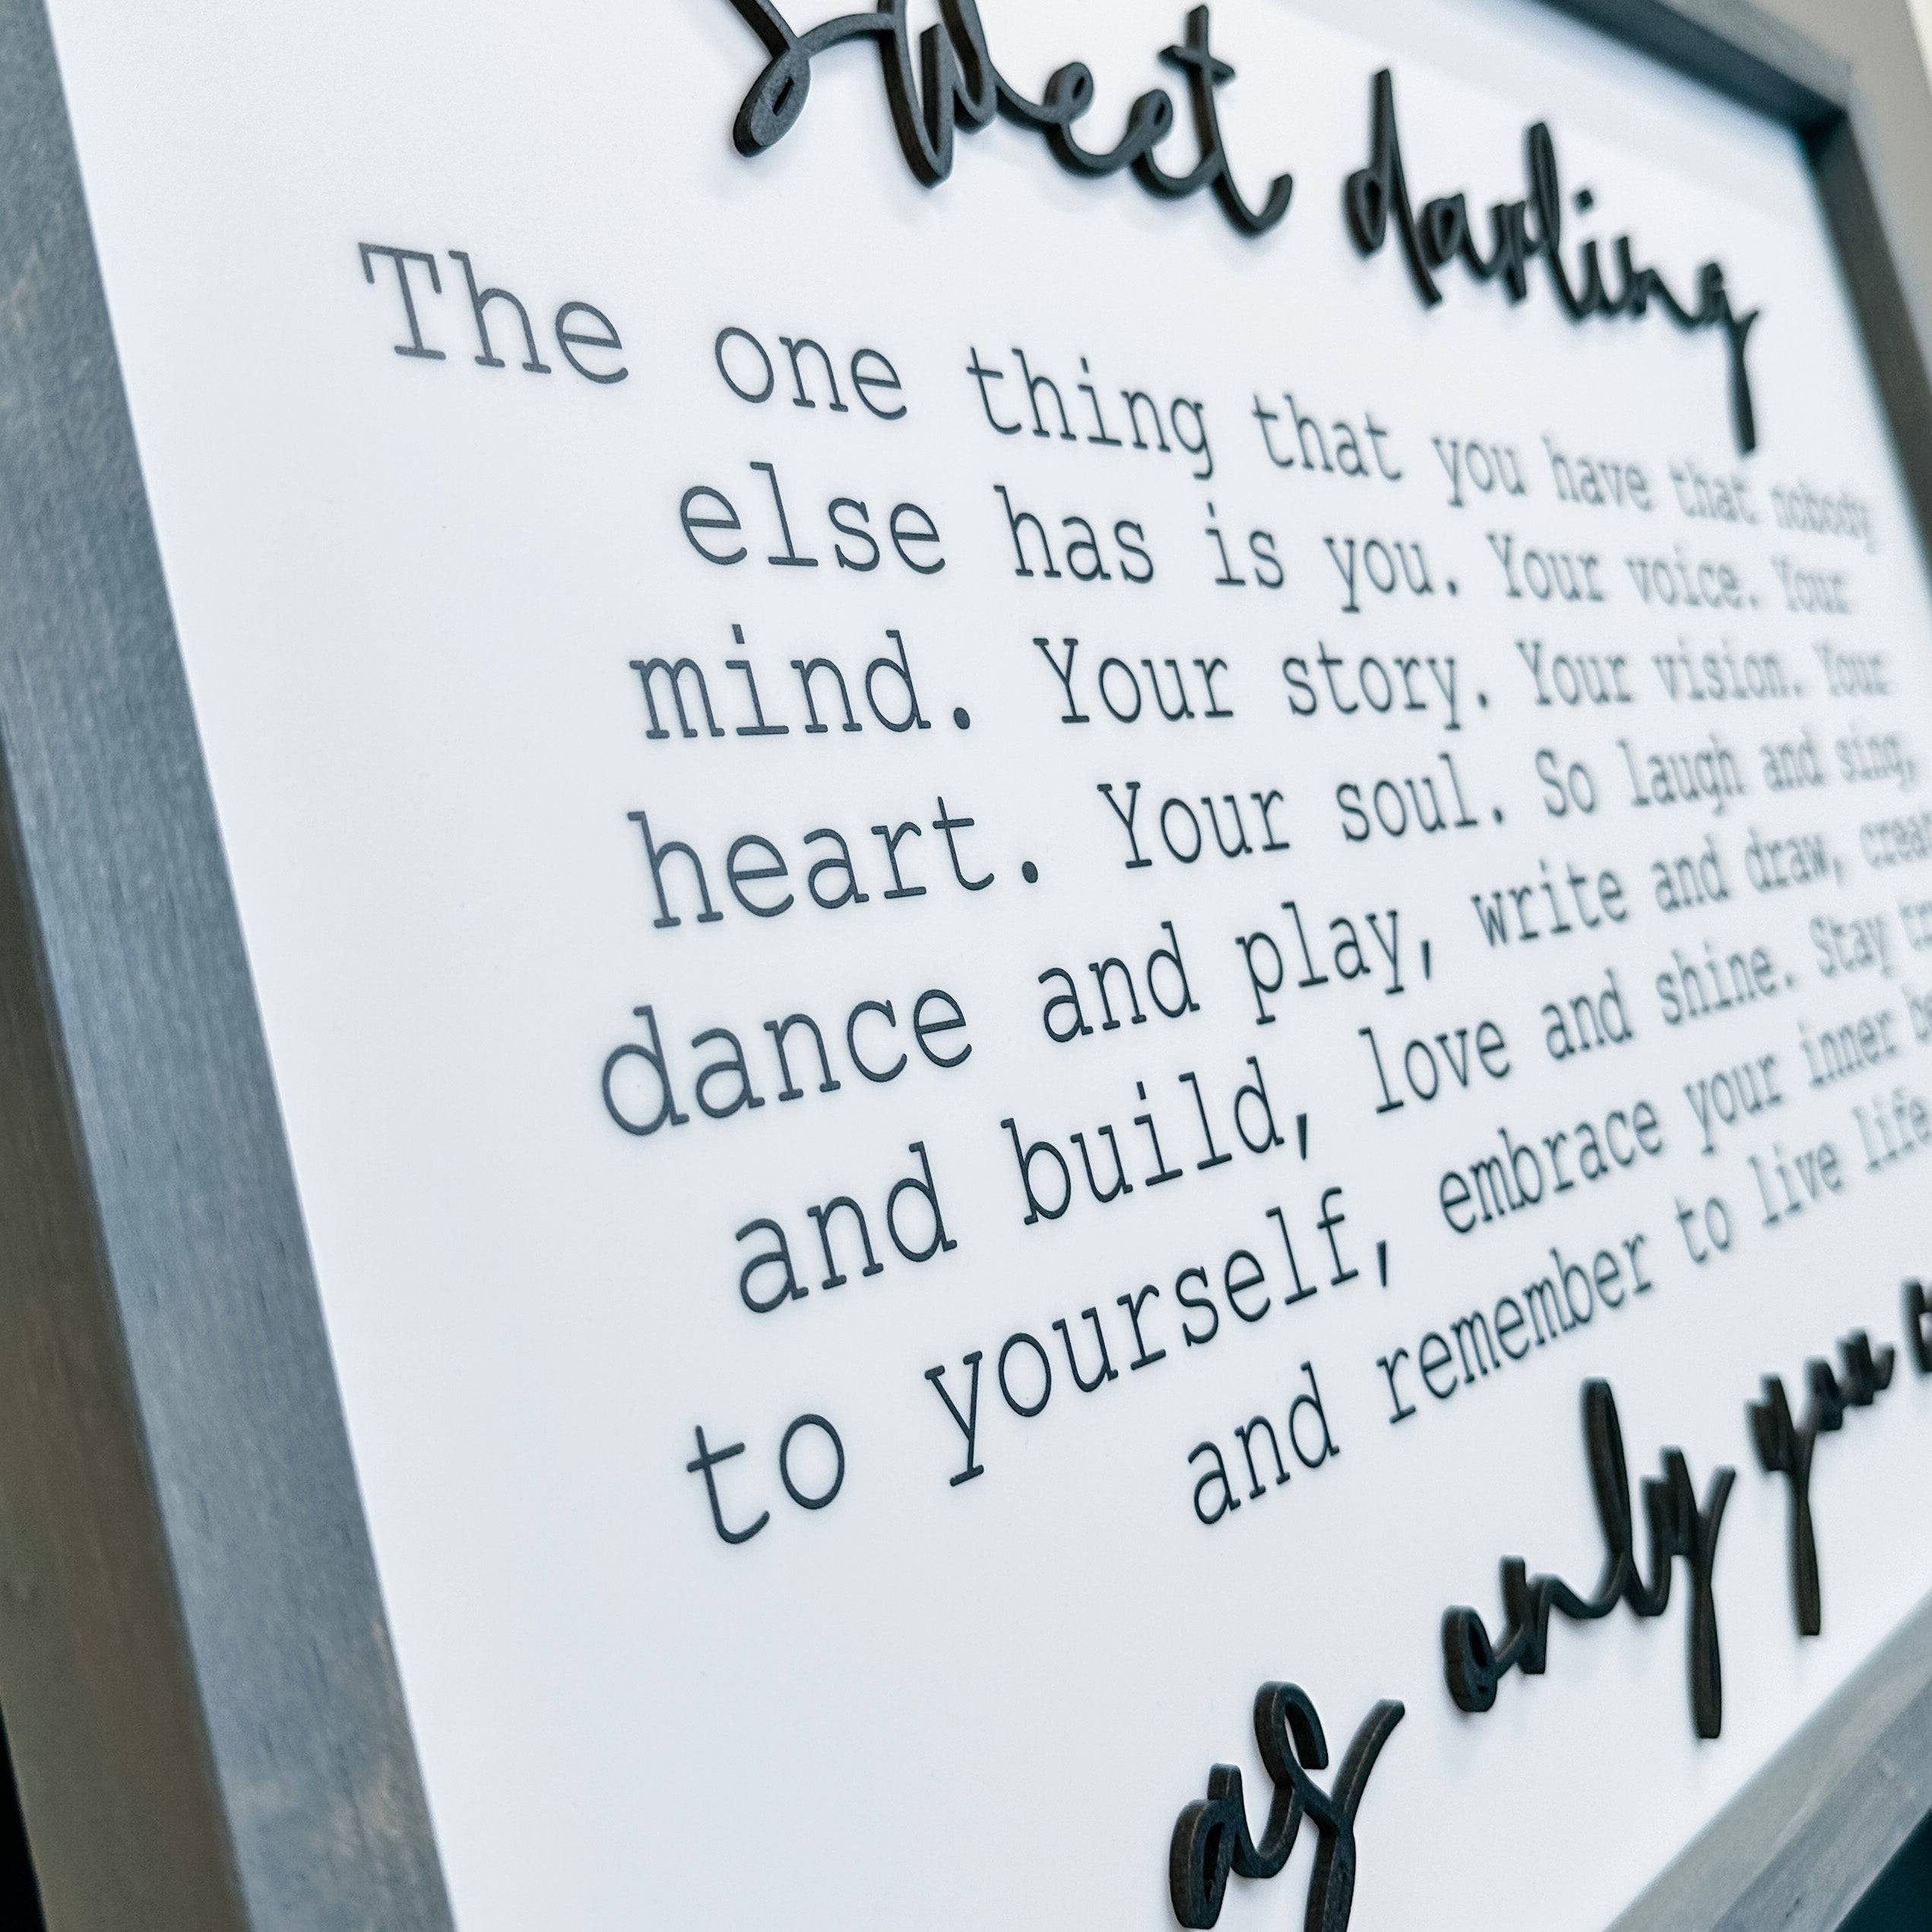 Sweet darling
The one thing that you have that nobody
else has is you. Your voice. Your
mind. Your story. Your vision. Your
heart. Your soul. So laugh and sing,
dance and play, write and draw,
and build, love and shine. Stay
to yourself, embrace your inner
and remember to live life
as only you